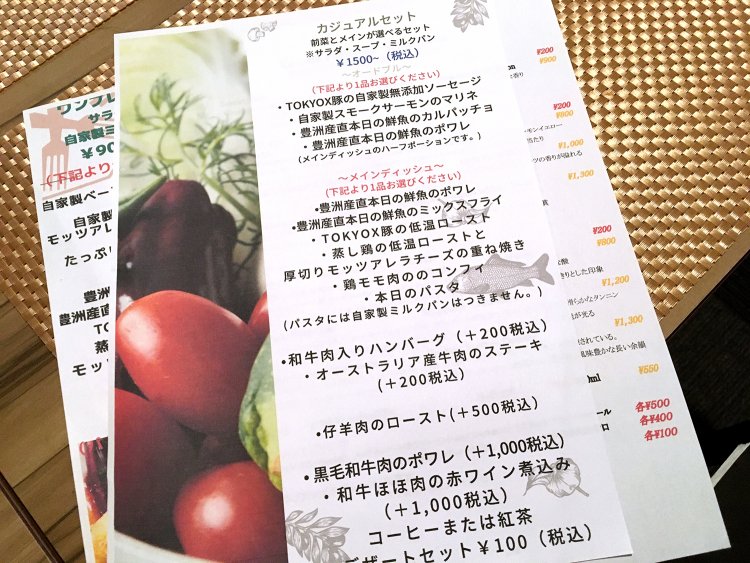 カジュアルセット
前菜とメインが選べるセット
※サラダ・スープ・ミルクパン
￥1500~（税込）
～オードブル～
(下記より1品お選びください)
・TOKYOX豚の自家製無添加ソーセージ
・自家製スモークサーモンのマリネ
・豊洲産直本日の鮮魚のカルパッチョ
・豊洲産直本日の鮮魚のポワレ
(メインディッシュのハーフポーションです。)
～メインディッシュ～
(下記より1品お選びください)
・豊洲産直本日の鮮魚のポワレ
・豊洲産直本日の鮮魚のミックスフライ
・TOKYOX豚の低温ロースト
・蒸し鶏の低温ローストと
厚切りモッツアレラチーズの重ね焼き
・鶏モモ肉ののコンフィ
・本日のパスタ
(パスタには自家製ミルクパンはつきません。)
・和牛肉入りハンバーグ（＋200税込）
・オーストラリア産牛肉のステーキ
(＋200税込)
・仔羊肉のロースト(＋500税込)
・黒毛和牛肉のポワレ（＋1,000税込）
・和牛ほほ肉の赤ワイン煮込み
（＋1,000税込）
コーヒーまたは紅茶
デザートセット￥100（税込）
ワンプレ
サラ
自家製ミ
￥90
（下記より
自家製ベー
自家製
モッツアレ
たっぷり
豊洲
豊洲産直
TO
蒸
モッツ
¥200
¥900
¥200
¥800
モンイエロー
¥1,000
ツの香りが溢れる
¥1,300
¥200
¥800
きりとした印象
¥1,200
滑らかなタンニン
が光る
¥1,300
されている。
風味豊かな長い余韻
ml
¥550
ール
各¥500
各¥400
ロ
各¥100